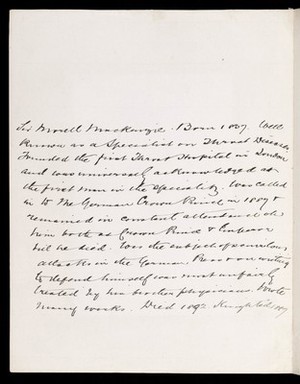 Sir Morell Mackenzie. Born 1837. Well
known as a Specialist on Throat Diseases
Founded the first Throat Hospital in London
and was universally acknowledged as
the first man in the speciality. Was called
in to the German Crown Prince in 1887 &
remained in constant attendance on
him both as Crown Prince & Emperor
till he died. Was the subject of scurrilous
attacks in the German Press & on writing
to defend himself was most unfairly
treated by his brother physicians. Wrote
many works. Died 1892 Knighted 1887